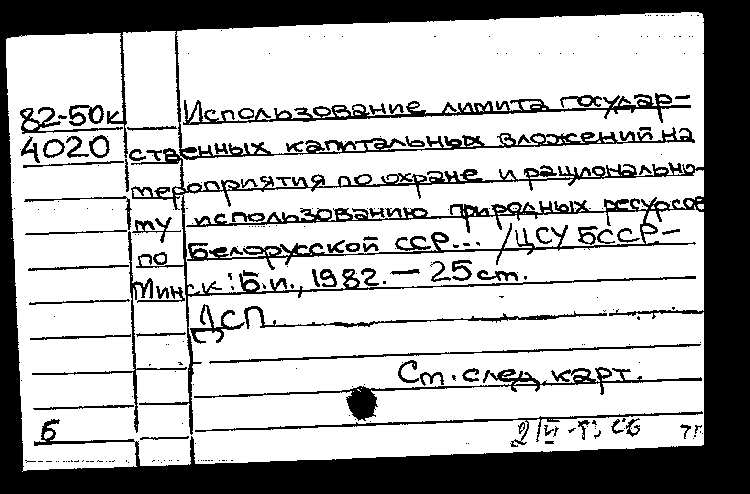 82-50к Использование лимита государ-
4020 ственных капитальных вложений на
мероприятия по охране и рационально-
му использованию природных ресурсов
по Белорусской ССР... / ЦСУ БССР.-
Минск: Б.и., 1982. - 25 ст.
ДСП.
Ст. след. карт.
Б